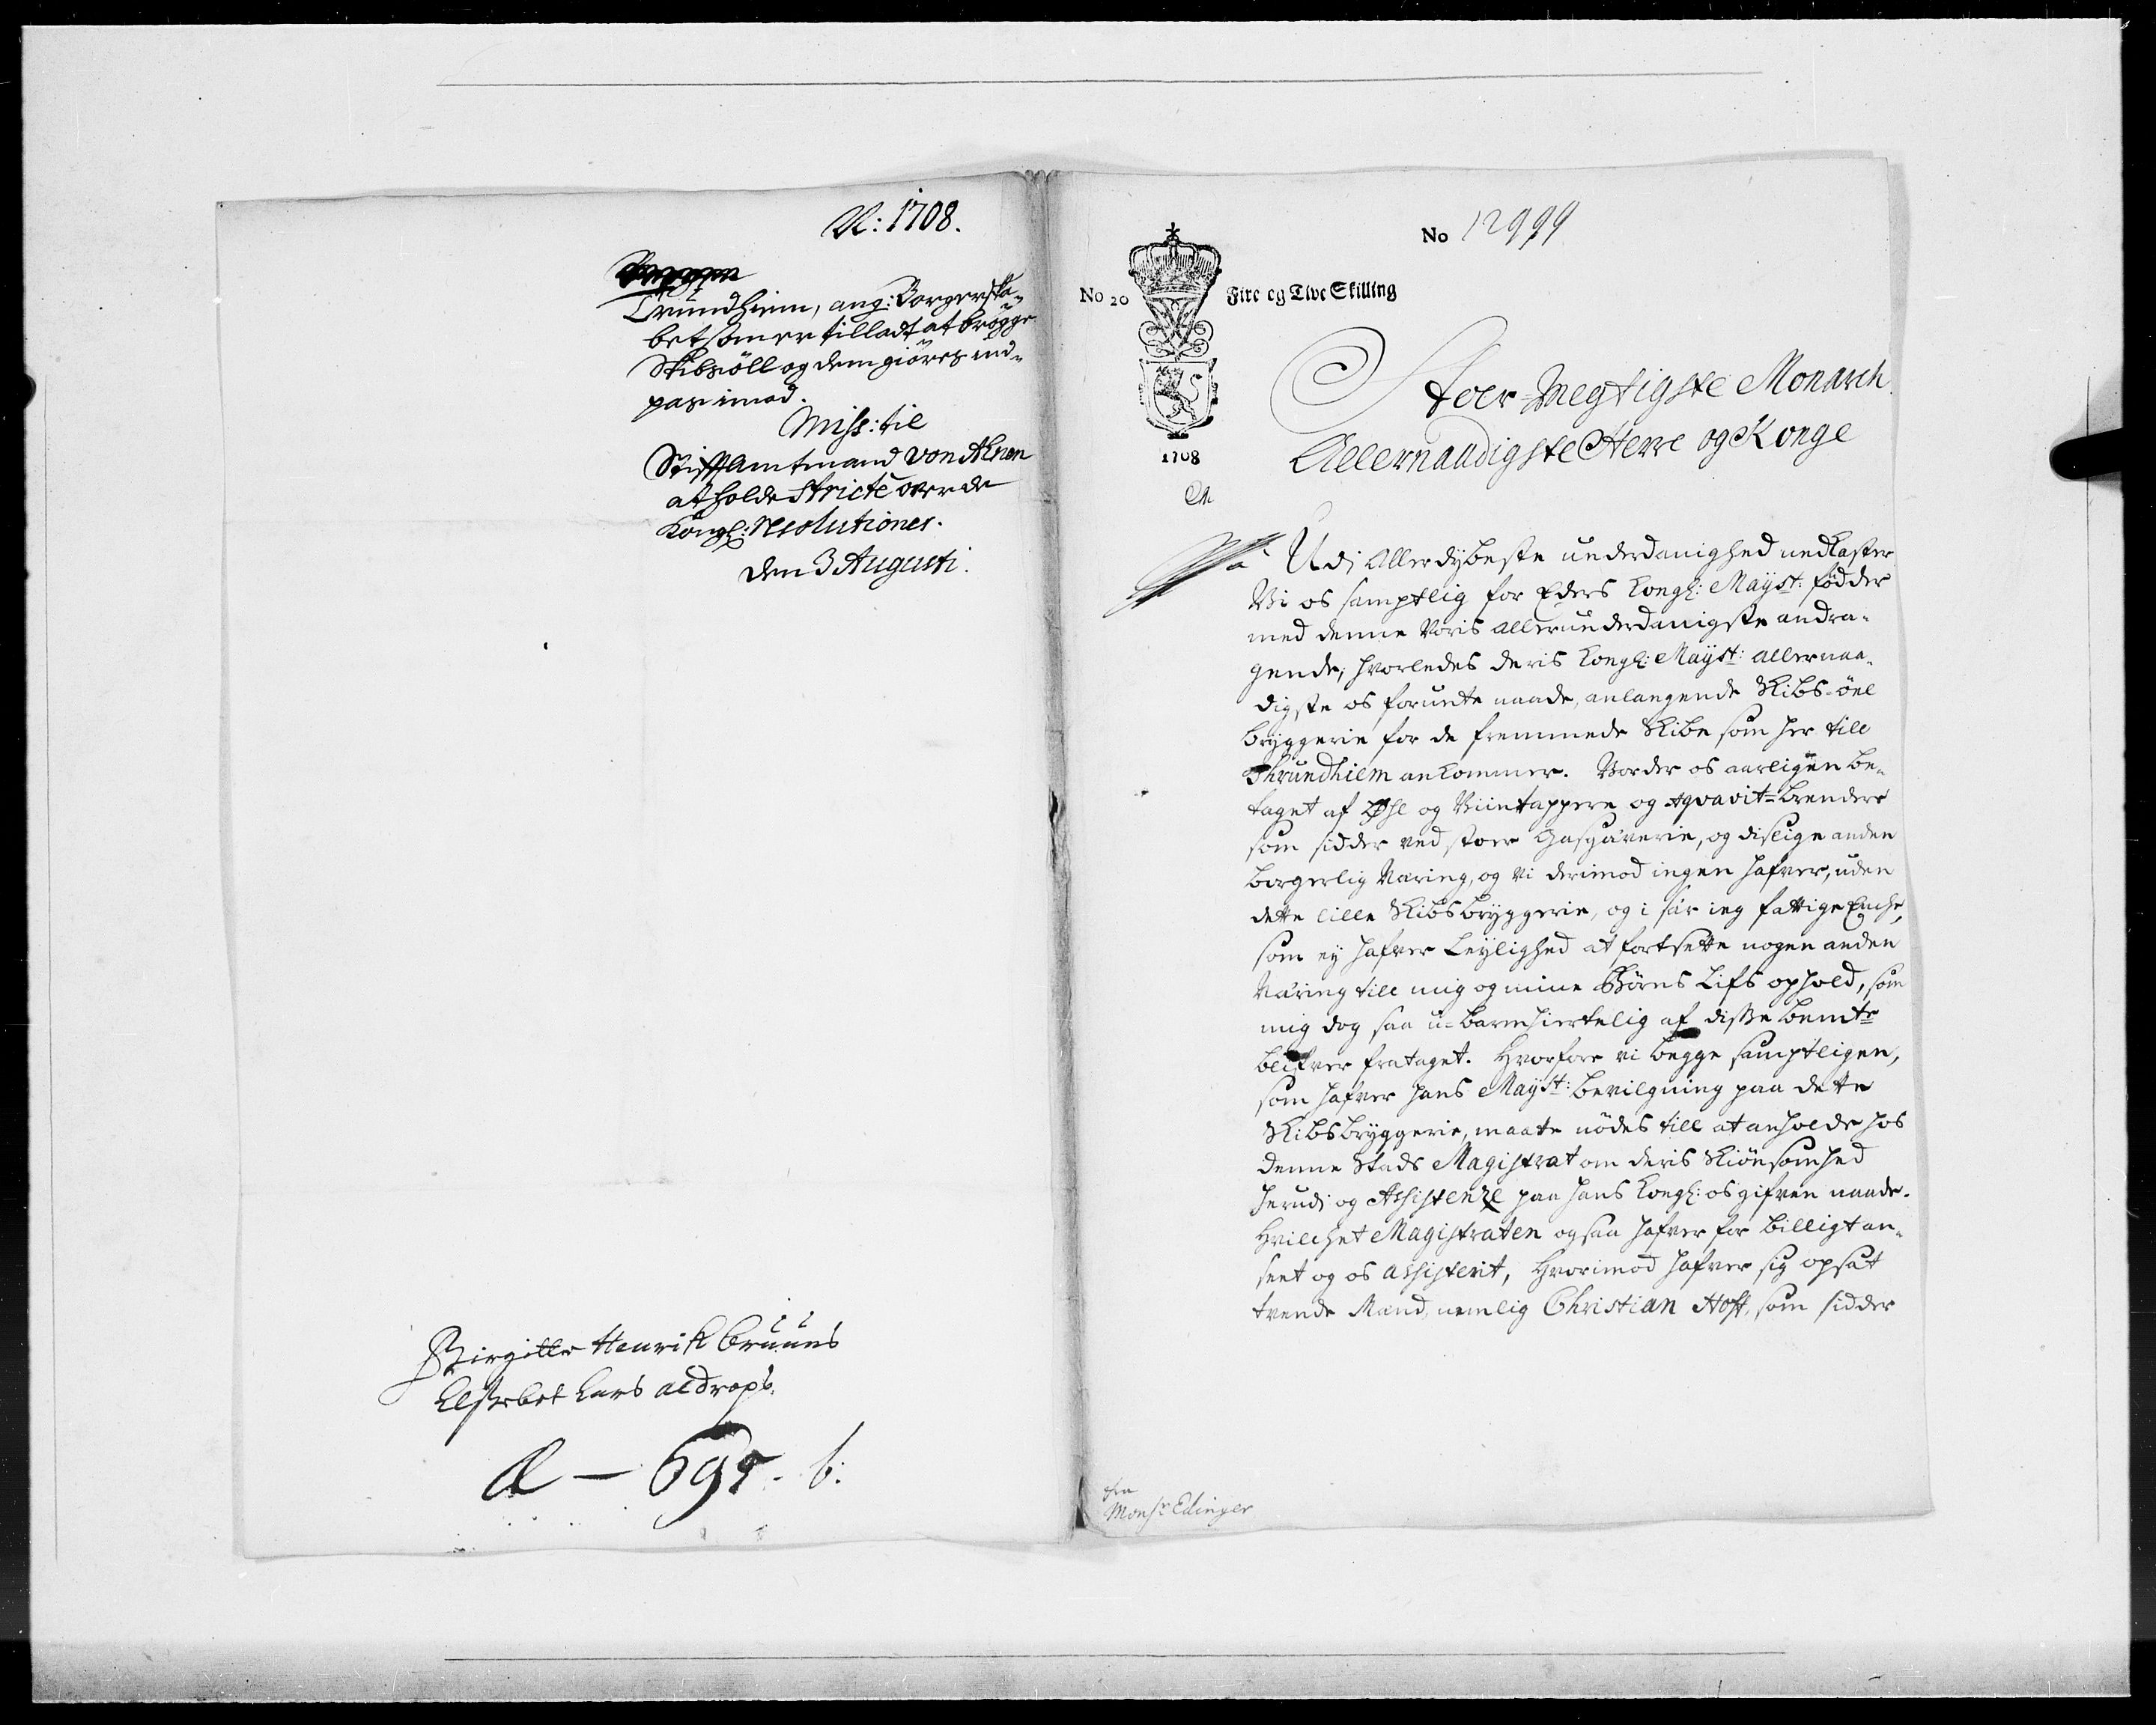 A: 1708.
Trundhiem, ang: Borgerska-
bet som er tilladt at brögge
Skibsöll og dem giöres ind-
pas imod.
Miss: til
Stifftamtmand von Ahnen
at holde stricte over de
Kongl: Resolutioner.
den 3 Augusti.
Birgitte Henrik Bruuns
Elsebet Lars aldrops.
A — 695. b:
No 12999
No 20 Fire og Tive Skilling
1708
Stoer-Megtigste Monarch
Allernaadigste Herre og Konge
Udj Allerdybeste underdanighed nedkaster
Vi os samptlig for Eders Kongl: Mayst: födder
med denne Voris allerunderdanigste andra-
gende, hvorledes deris Kongl: Mayst: allernaa-
digste os forunte naade, anlangende Skibs-öel
bryggerie for de fremmede Skibe som her till
Thrundhiem ankommer. Vorder os aarligen be-
taget af Øhl og Viintappere og Aqvavit-brendere
som sidder ved stoer Gasgiverie, og dislige anden
borgerlig Næring, og vi derimod ingen hafver, uden
dette lille Skibsbryggerie, og i sær ieg fattige Enche,
som ey hafver Leylighed at fortsette nogen anden
Næring till mig og mine Börns Lifs ophold, som
mig dog saa u-barmhiertelig af disse bemte
blifver frataget. Hvorfore vi begge samptligen,
som hafver hans Mayst: bevilgning paa dette
Skibsbryggerie, maate nödes till at anholde hos
denne Stads Magistrat om deris Skiönsomhed
herudj og Assistenze paa hans Kongl: os gifven naade.
Hvilchet Magistraten ogsaa hafver for billigt an-
seet og os assisterit, Hvorimod hafver sig opsat
tvende Mænd, nemlig Christian Hoff, som sidder
fra
Monsr Edinger